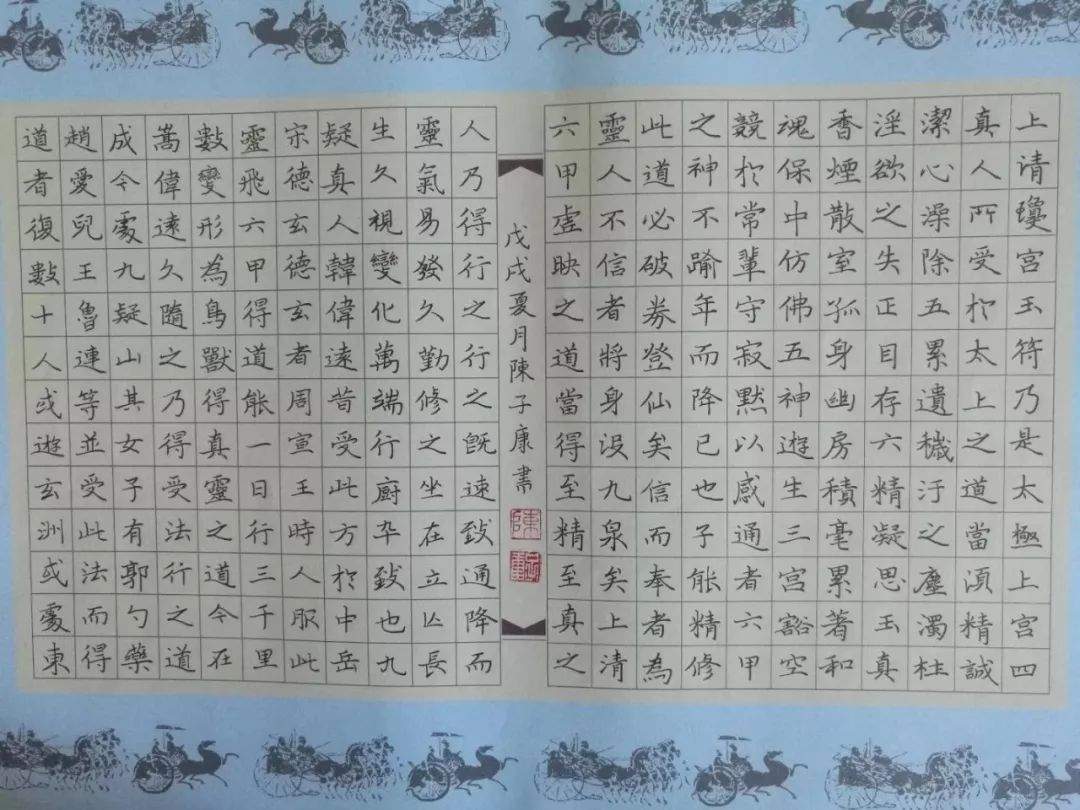 上请瓊宮玉符乃是太極上宮四
真人所受於太上之道當須精誠
潔心澡除五累遺穢汙之塵濁杜
淫欲之失正目存六精凝思玉真
香煙散室孤身幽房積毫累著和
魂保中仿佛五神遊生三宮豁空
競於常輩守寂默以感通者六甲
之神不踰年而降已也子能精修
此道必破券登仙矣信而奉者為
靈人不信者將身沒九泉矣上清
六甲虛映之道當得至精至真之
戊戌夏月陳子康書
人乃得行之行之既速致通降而
靈氣易發久勤修之坐在立亾長
生久視變化萬端行廚卒致也九
疑真人韓偉遠昔受此方於中岳
宋德玄德玄者周宣王時人服此
靈飛六甲得道能一日行三千里
數變形為鳥獸得真靈之道今在
嵩偉遠久隨之乃得受法行之道
成今處九疑山其女子有郭勺藥
趙愛兒王魯連等並受此法而得
道者復數十人或遊玄洲或處東